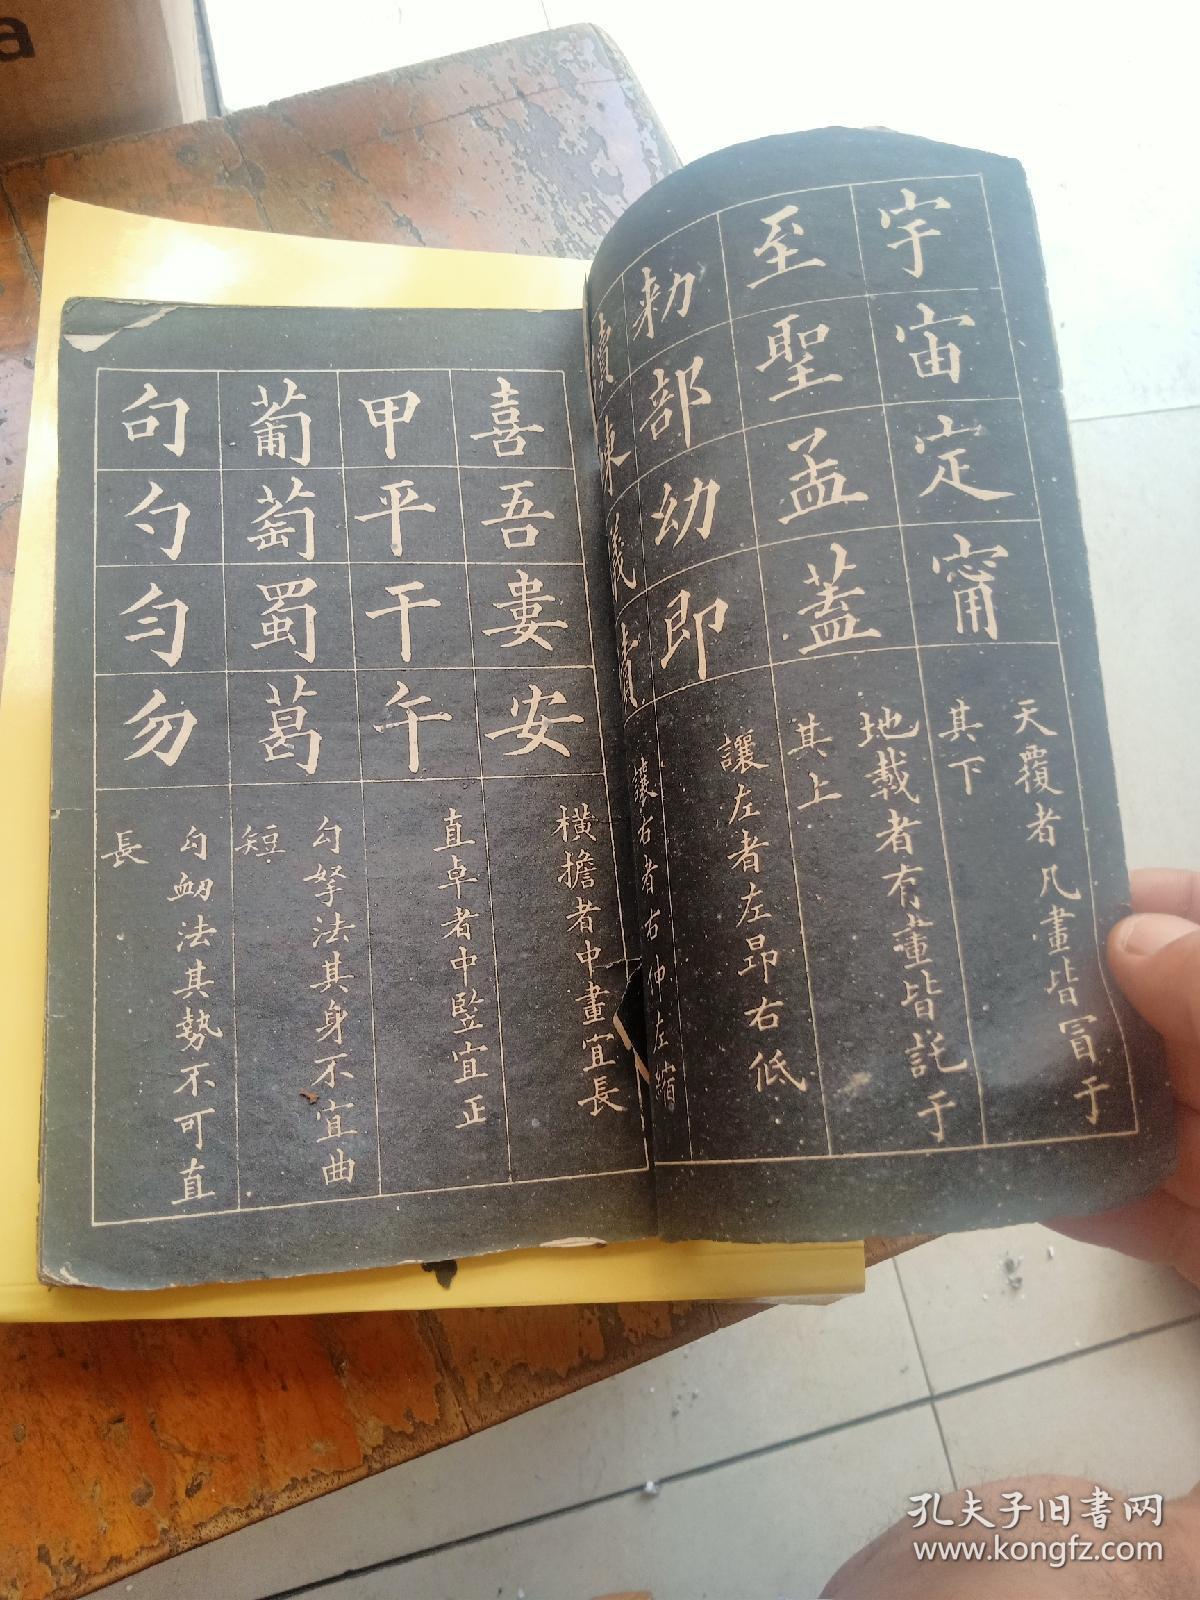 宇宙定甯
天覆者凡畫皆冒于
其下
至聖孟蓋
地載者有畫皆託于
其上
勅部幼即
讓左者左昂右低
讓右者右伸左縮
喜吾婁安
橫擔者中畫宜長
甲平干午
直卓者中竪宜正
葡萄蜀葛
勾努法其身不宜曲
短
句勺勻勿
勾衂法其勢不可直
長
孔夫子旧书网
www.kongfz.com